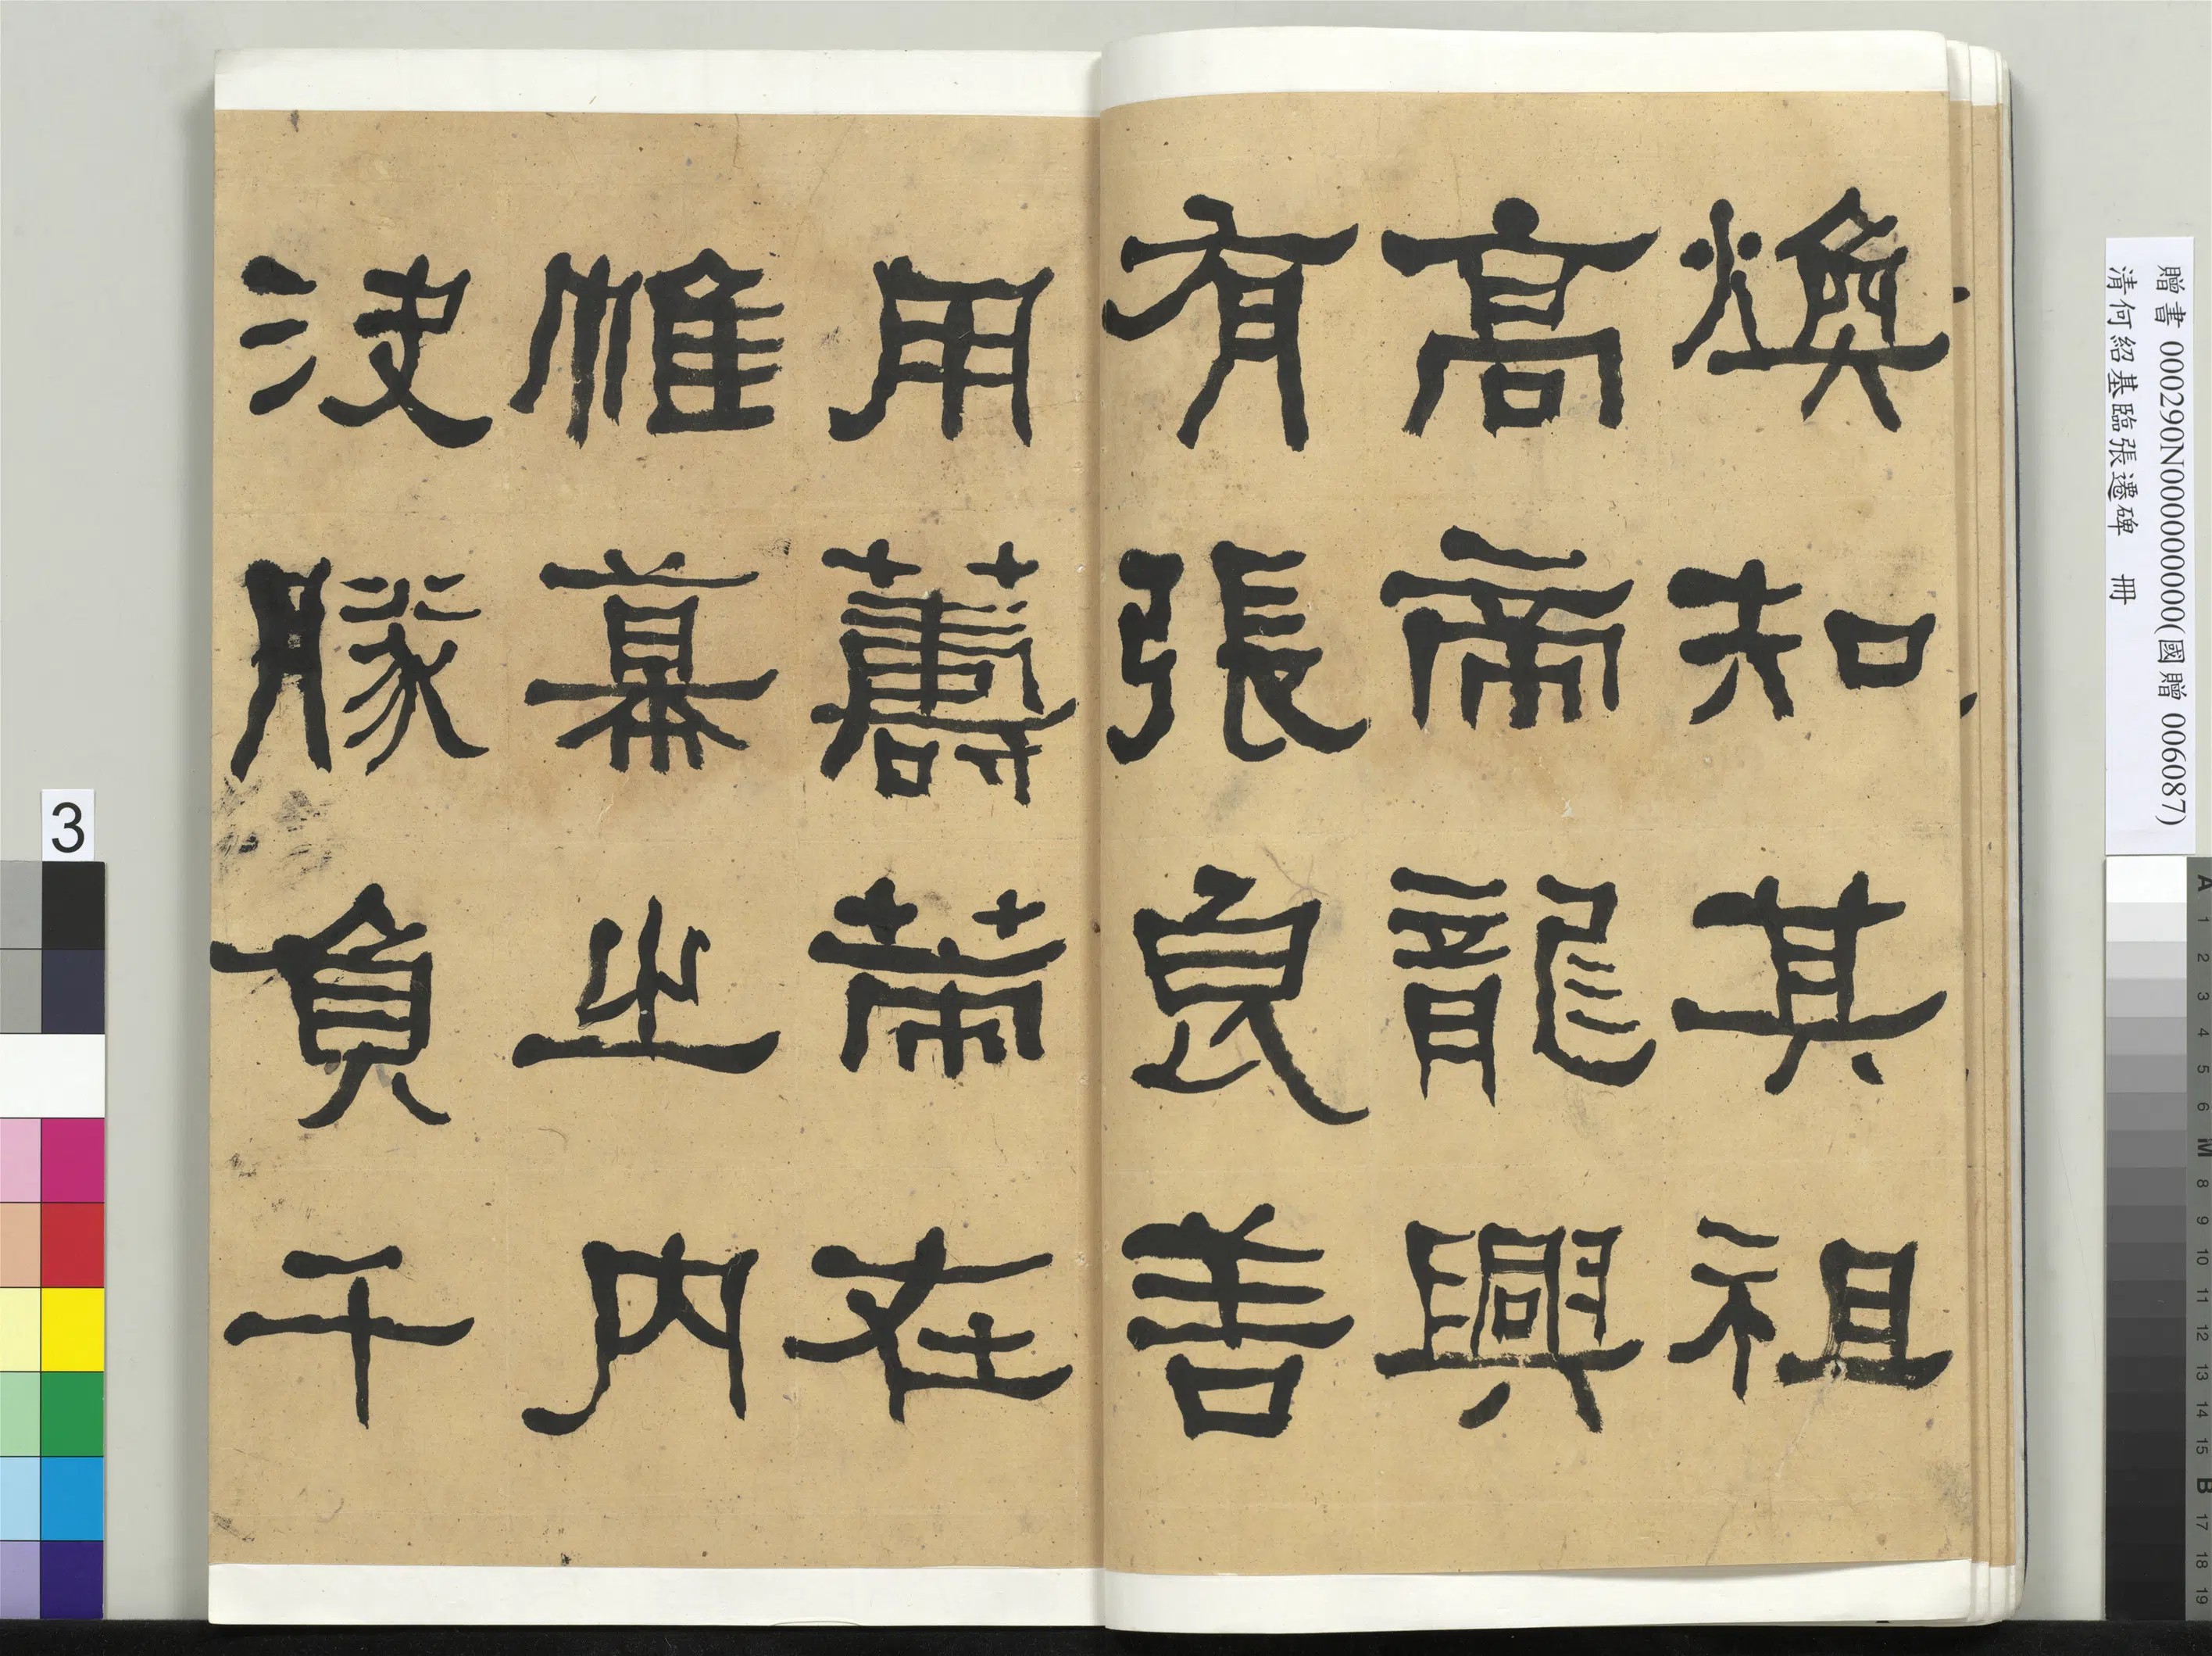 煥知其祖
高帝龍興
有張良善
用蕭䓑在
帷幕之內
決勝負千
贈書 000290N000000000(國贈 006087)
清何紹基臨張遷碑 冊
3
A 1 2 3 4 5 6 M 8 9 10 11 12 13 14 15 B 17 18 19